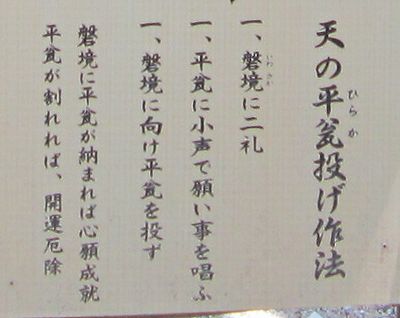 天の平瓮投げ作法
ひらか
一、磐境に二礼
いわさか
一、平瓮に小声で願い事を唱ふ
一、磐境に向け平瓮を投ず
磐境に平瓮が納まれば心願成就
平瓮が割れれば、開運厄除